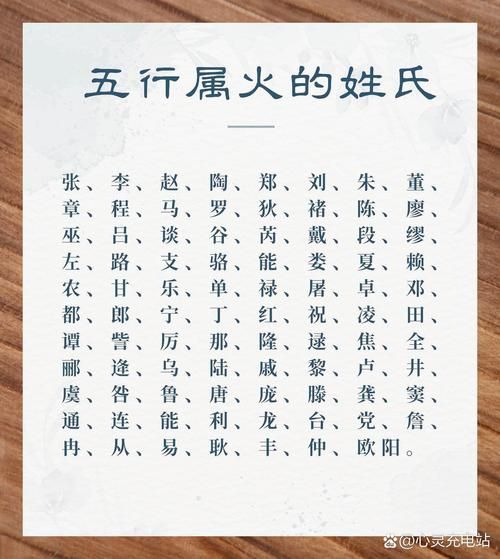 五行属火的姓氏
张、李、赵、陶、郑、刘、朱、董、
章、程、马、罗、狄、褚、陈、廖、
巫、吕、谈、谷、芮、戴、段、缪、
左、路、支、骆、能、娄、夏、赖、
农、甘、乐、单、禄、屠、卓、邓、
都、郎、宁、丁、红、祝、凌、田、
谭、訾、厉、那、隆、逯、焦、全、
郦、逄、乌、陆、戚、黎、卢、井、
虞、昝、鲁、唐、庞、滕、龚、窦、
通、连、能、利、龙、台、党、詹、
冉、从、易、耿、丰、仲、欧阳。
心灵充电站